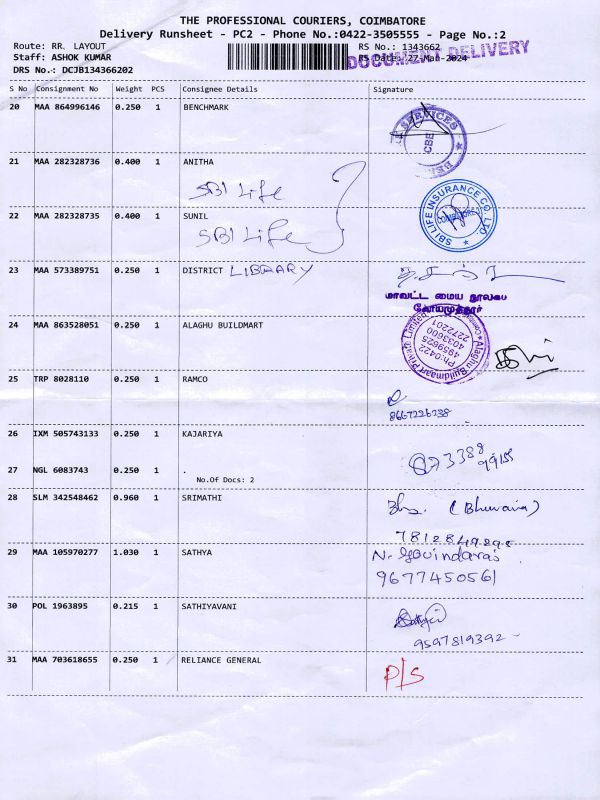 THE PROFESSIONAL COURIERS, COIMBATORE
Delivery Runsheet - PC2 - Phone No.:0422-3505555 - Page No.:2
Route: RR. LAYOUT
RS No.: 1343662
Staff: ASHOK KUMAR
RS Date: 27-Mar-2024
DOCUMENT DELIVERY
DRS No.: DCJB134366202
S No Consignment No Weight PCS Consignee Details Signature
20 MAA 864996146 0.250 1 BENCHMARK
SERVICES
CBE
21 MAA 282328736 0.400 1 ANITHA
SBI Life
SBI LIFE INSURANCE CO LTD.
COIMBATORE
22 MAA 282328735 0.400 1 SUNIL
SBI Life
23 MAA 573389751 0.250 1 DISTRICT LIBRARY
மாவட்ட மைய நூலகம்
கோயமுத்தூர்
24 MAA 863528051 0.250 1 ALAGHU BUILDMART
Alaghu Buildmaart Private Limited
Ph:0422
4959625
4033600
2272201
25 TRP 8028110 0.250 1 RAMCO
8667226238
26 IXM 505743133 0.250 1 KAJARIYA
73388
99155
27 NGL 6083743 0.250 1 .
No.Of Docs: 2
28 SLM 342548462 0.960 1 SRIMATHI
(Bhuvana)
7812849298
29 MAA 105970277 1.030 1 SATHYA
N. Govindaraj
9677450561
30 POL 1963895 0.215 1 SATHIYAVANI
9597819392
31 MAA 703618655 0.250 1 RELIANCE GENERAL
P/S